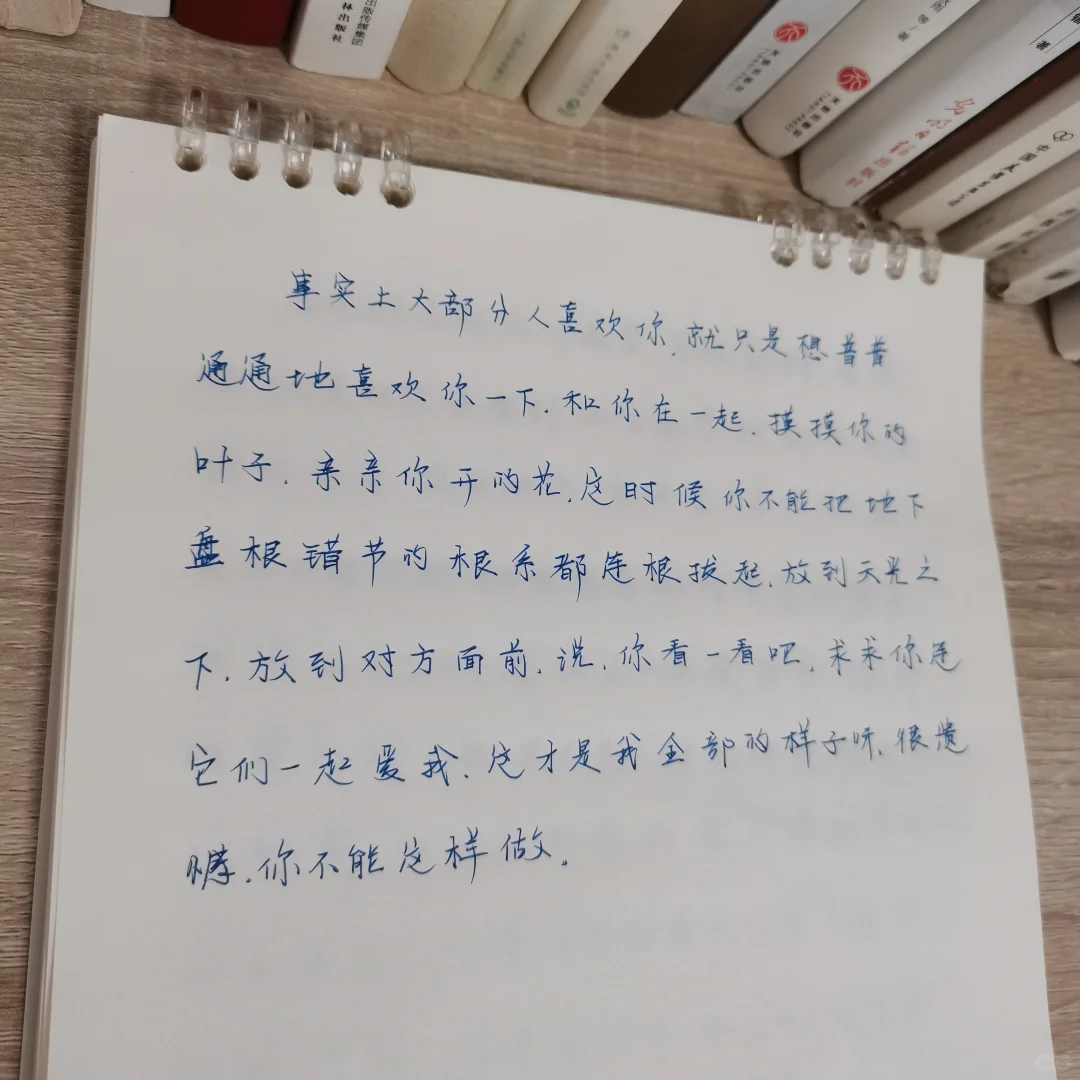 林出版社
出版传媒集团
事实上大部分人喜欢你,就只是想普普
通通地喜欢你一下.和你在一起.摸摸你的
叶子.亲亲你开的花.这时候你不能把地下
盘根错节的根系都连根拔起.放到天光之
下.放到对方面前.说.你看一看吧.求求你连
它们一起爱我.这才是我全部的样子呀.很遗
憾.你不能这样做.